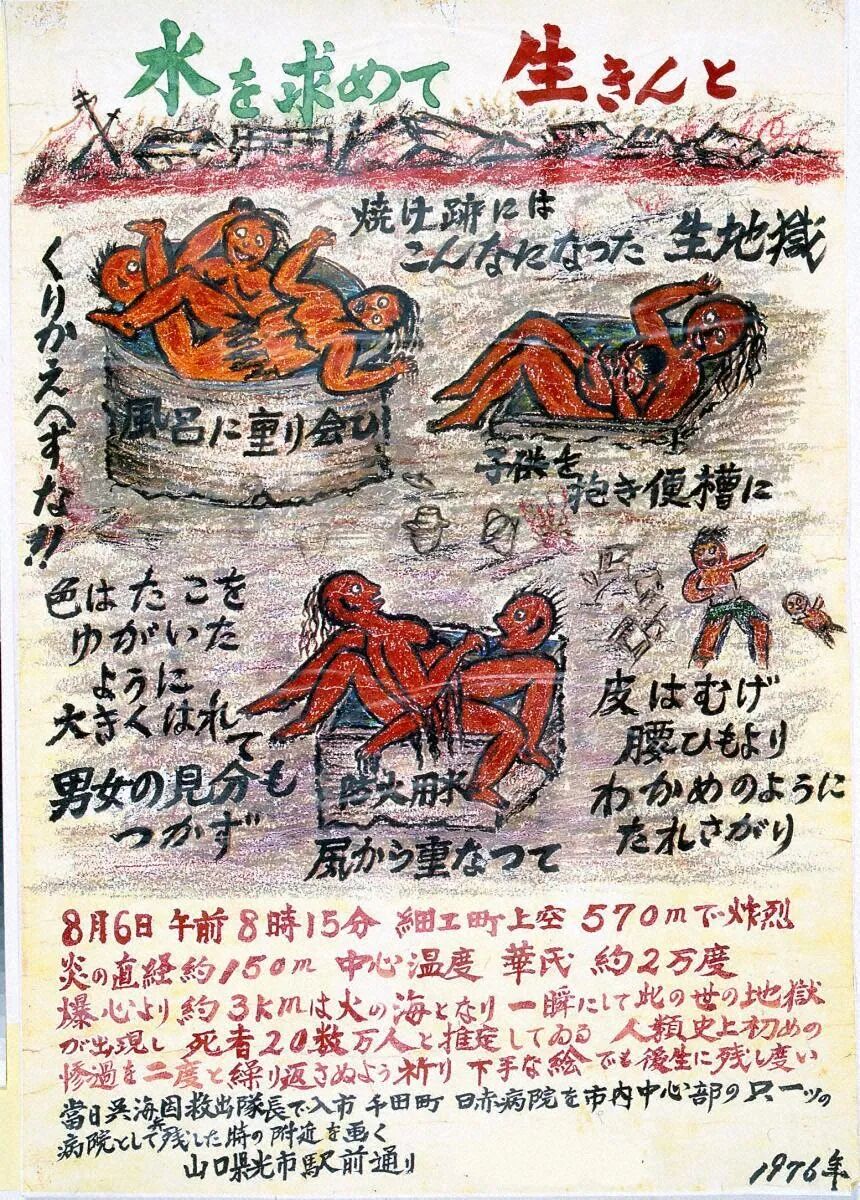 水を求めて 生きんと
焼け跡には
こんなになった 生地獄
くりかえへすな!!
風呂に重り会ひ
子供を
抱き便槽に
色はたこを
ゆがいた
ように
大きくはれて
男女の見分も
つかず
防火用水
尻から重なつて
皮はむげ
腰ひもより
わかめのように
たれさがり
8月6日 午前 8時15分 細工町上空 570mで炸烈
炎の直経約150m 中心温度 華氏 約2万度
爆心より 約3kmは火の海となり 一瞬にして此の世の地獄
が出現し 死者20数万人と推定してゐる 人類史上初めの
惨過を二度と繰り返さぬよう祈り 下手な絵でも後生に残し度い
當日呉海団救出隊長で入市 千田町 日赤病院を市内中心部の只一ツの
病院として残した時の附近を画く
山口県光市駅前通り
1976年